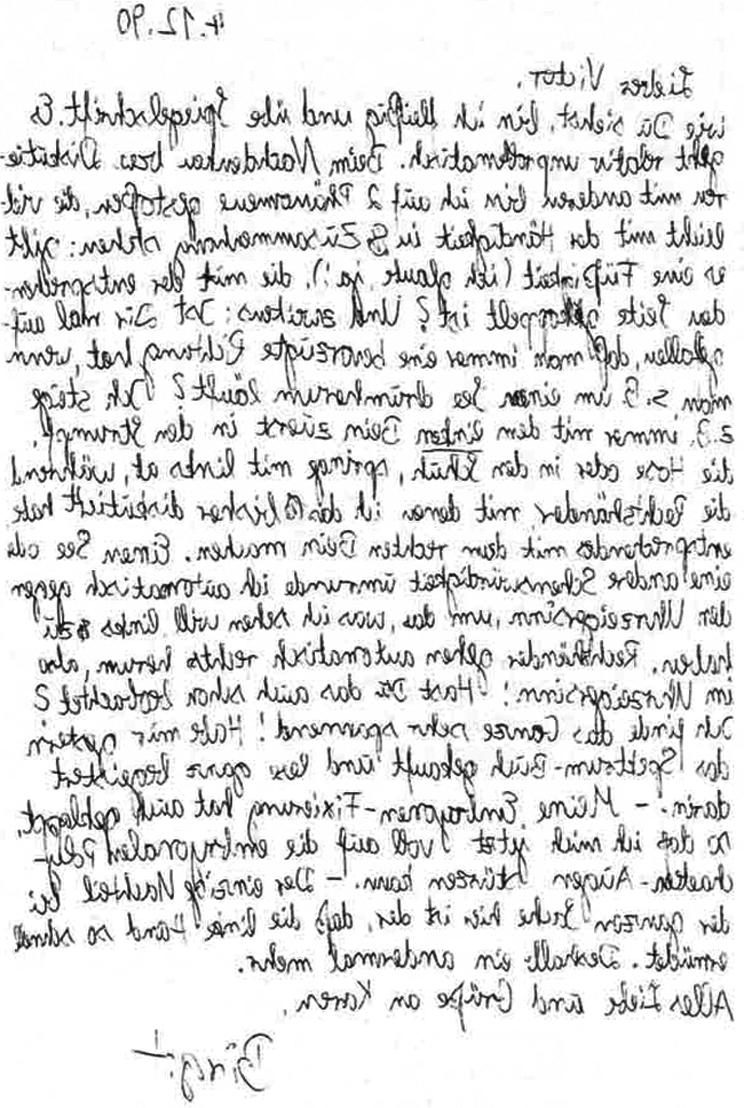 4.12.90
Lieber Victor,
wie Du siehst, bin ich fleißig und übe Spiegelschrift. Es
geht relativ unproblematisch. Beim Nachdenken bzw. Diskutie-
ren mit anderen bin ich auf 2 Phänomene gestoßen, die viel-
leicht mit der Händigkeit in Zusammenhang stehen: gibt
es eine Füßigkeit (ich glaube ja!), die mit der entsprechen-
den Seite gekoppelt ist? Und zweitens: Ist Dir mal auf-
gefallen, daß man immer eine bevorzugte Richtung hat, wenn
man z.B. um einen See drumherum läuft? Ich steige
z.B. immer mit dem linken Bein zuerst in den Strumpf,
die Hose oder in den Schuh, springe mit links ab, während
die Rechtshänder, mit denen ich das bisher diskutiert habe
entsprechendes mit dem rechten Bein machen. Einen See oder
eine andere Sehenswürdigkeit umrunde ich automatisch gegen
den Uhrzeigersinn, um das, was ich sehen will links zu
haben. Rechtshänder gehen automatisch rechts herum, also
im Uhrzeigersinn! Hast Du das auch schon beobachtet?
Ich finde das Ganze sehr spannend! Habe mir gestern
das Spektrum-Buch gekauft und lese ganz begeistert
darin. - Meine Embryonen-Fixierung hat auch geklappt,
so daß ich mich jetzt voll auf die embryonalen Poly-
chaeten-Augen stürzen kann. - Der einzige Nachteil bei
der ganzen Sache hier ist der, daß die linke Hand so schnell
ermüdet. Deshalb ein andermal mehr.
Alles Liebe und Grüße an Karen,
Birgit